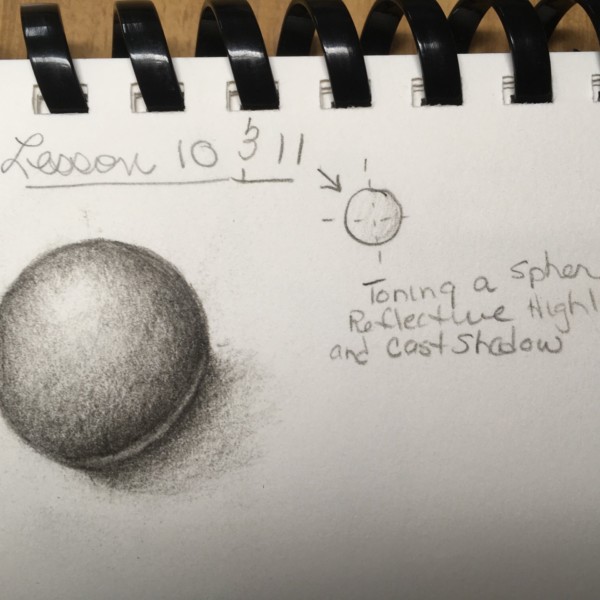 Lesson 10 & 11
Toning a Spher
Reflective Highl
and Cast Shadow